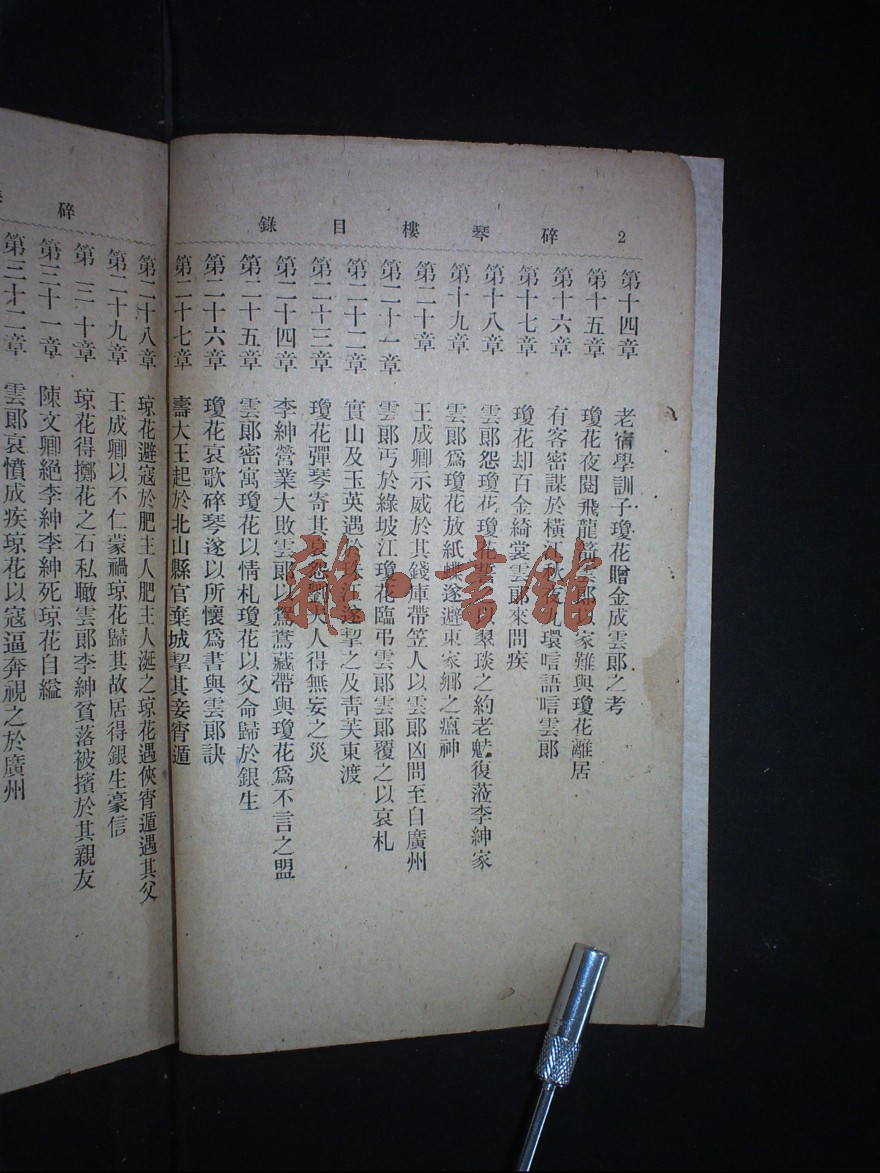 2 碎琴樓目錄
第十四章 老宿學訓子瓊花贈金成雲郞之考
第十五章 瓊花夜閱飛龍箭雲郞以家難與瓊花離居
第十六章 有客密謀於橫江 九環唁語唁雲郞
第十七章 瓊花却百金綺裳雲郞來問疾
第十八章 雲郞怨瓊花瓊花 翠琰之約老魅復蒞李紳家
第十九章 雲郞爲瓊花放紙蝶遂避東家鄕之瘟神
第二十章 王成卿示威於其錢庫帶笠人以雲郞凶問至自廣州
第二十一章 雲郞丐於綠坡江瓊花臨弔雲郞雲郞覆之以哀札
第二十二章 實山及玉英遇 遂挈之及靑芙東渡
第二十三章 瓊花彈琴寄其哀怨劉夫人得無妄之災
第二十四章 李紳營業大敗雲郞以鴛鴦藏帶與瓊花爲不言之盟
第二十五章 雲郞密寓瓊花以情札瓊花以父命歸於銀生
第二十六章 瓊花哀歌碎琴遂以所懷爲書與雲郞訣
第二十七章 壽大王起於北山縣官棄城挈其妾宵遁
碎
第二十八章 琼花避寇於肥主人肥主人涎之琼花遇俠宵遁遇其父
第二十九章 王成卿以不仁蒙禍琼花歸其故居得銀生豪信
第三十章 琼花得擲花之石私瞰雲郞李紳貧落被擯於其親友
第三十一章 陳文卿絕李紳李紳死琼花自縊
第三十二章 雲郞哀憤成疾琼花以寇逼奔視之於廣州
雜·書館